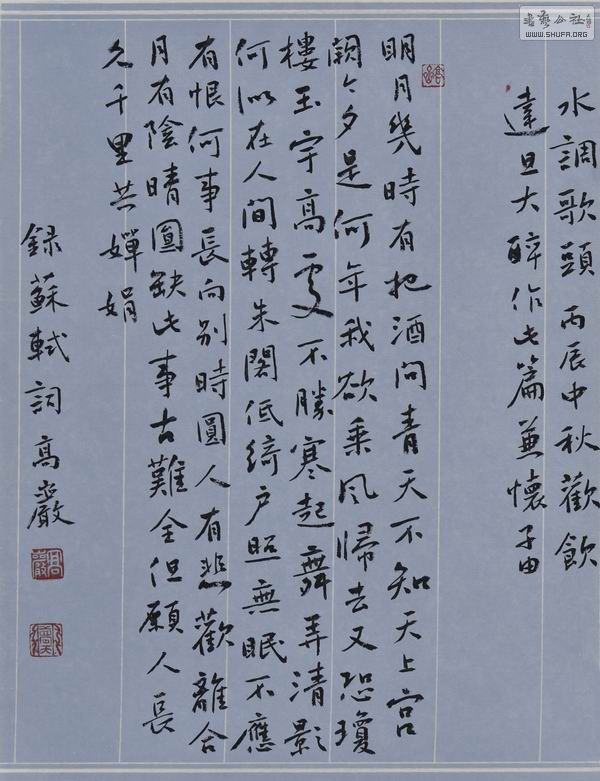 水調歌頭 丙辰中秋歡飲
達旦大醉作此篇兼懷子由
明月幾時有把酒問青天不知天上宮
闕今夕是何年我欲乘風歸去又恐瓊
樓玉宇高處不勝寒起舞弄清影
何似在人間轉朱閣低綺户照無眠不應
有恨何事長向别時圓人有悲歡離合
月有陰晴圓缺此事古難全但願人長
久千里共嬋娟
録蘇軾詞 高巖
書藝公社
WWW.SHUFA.ORG